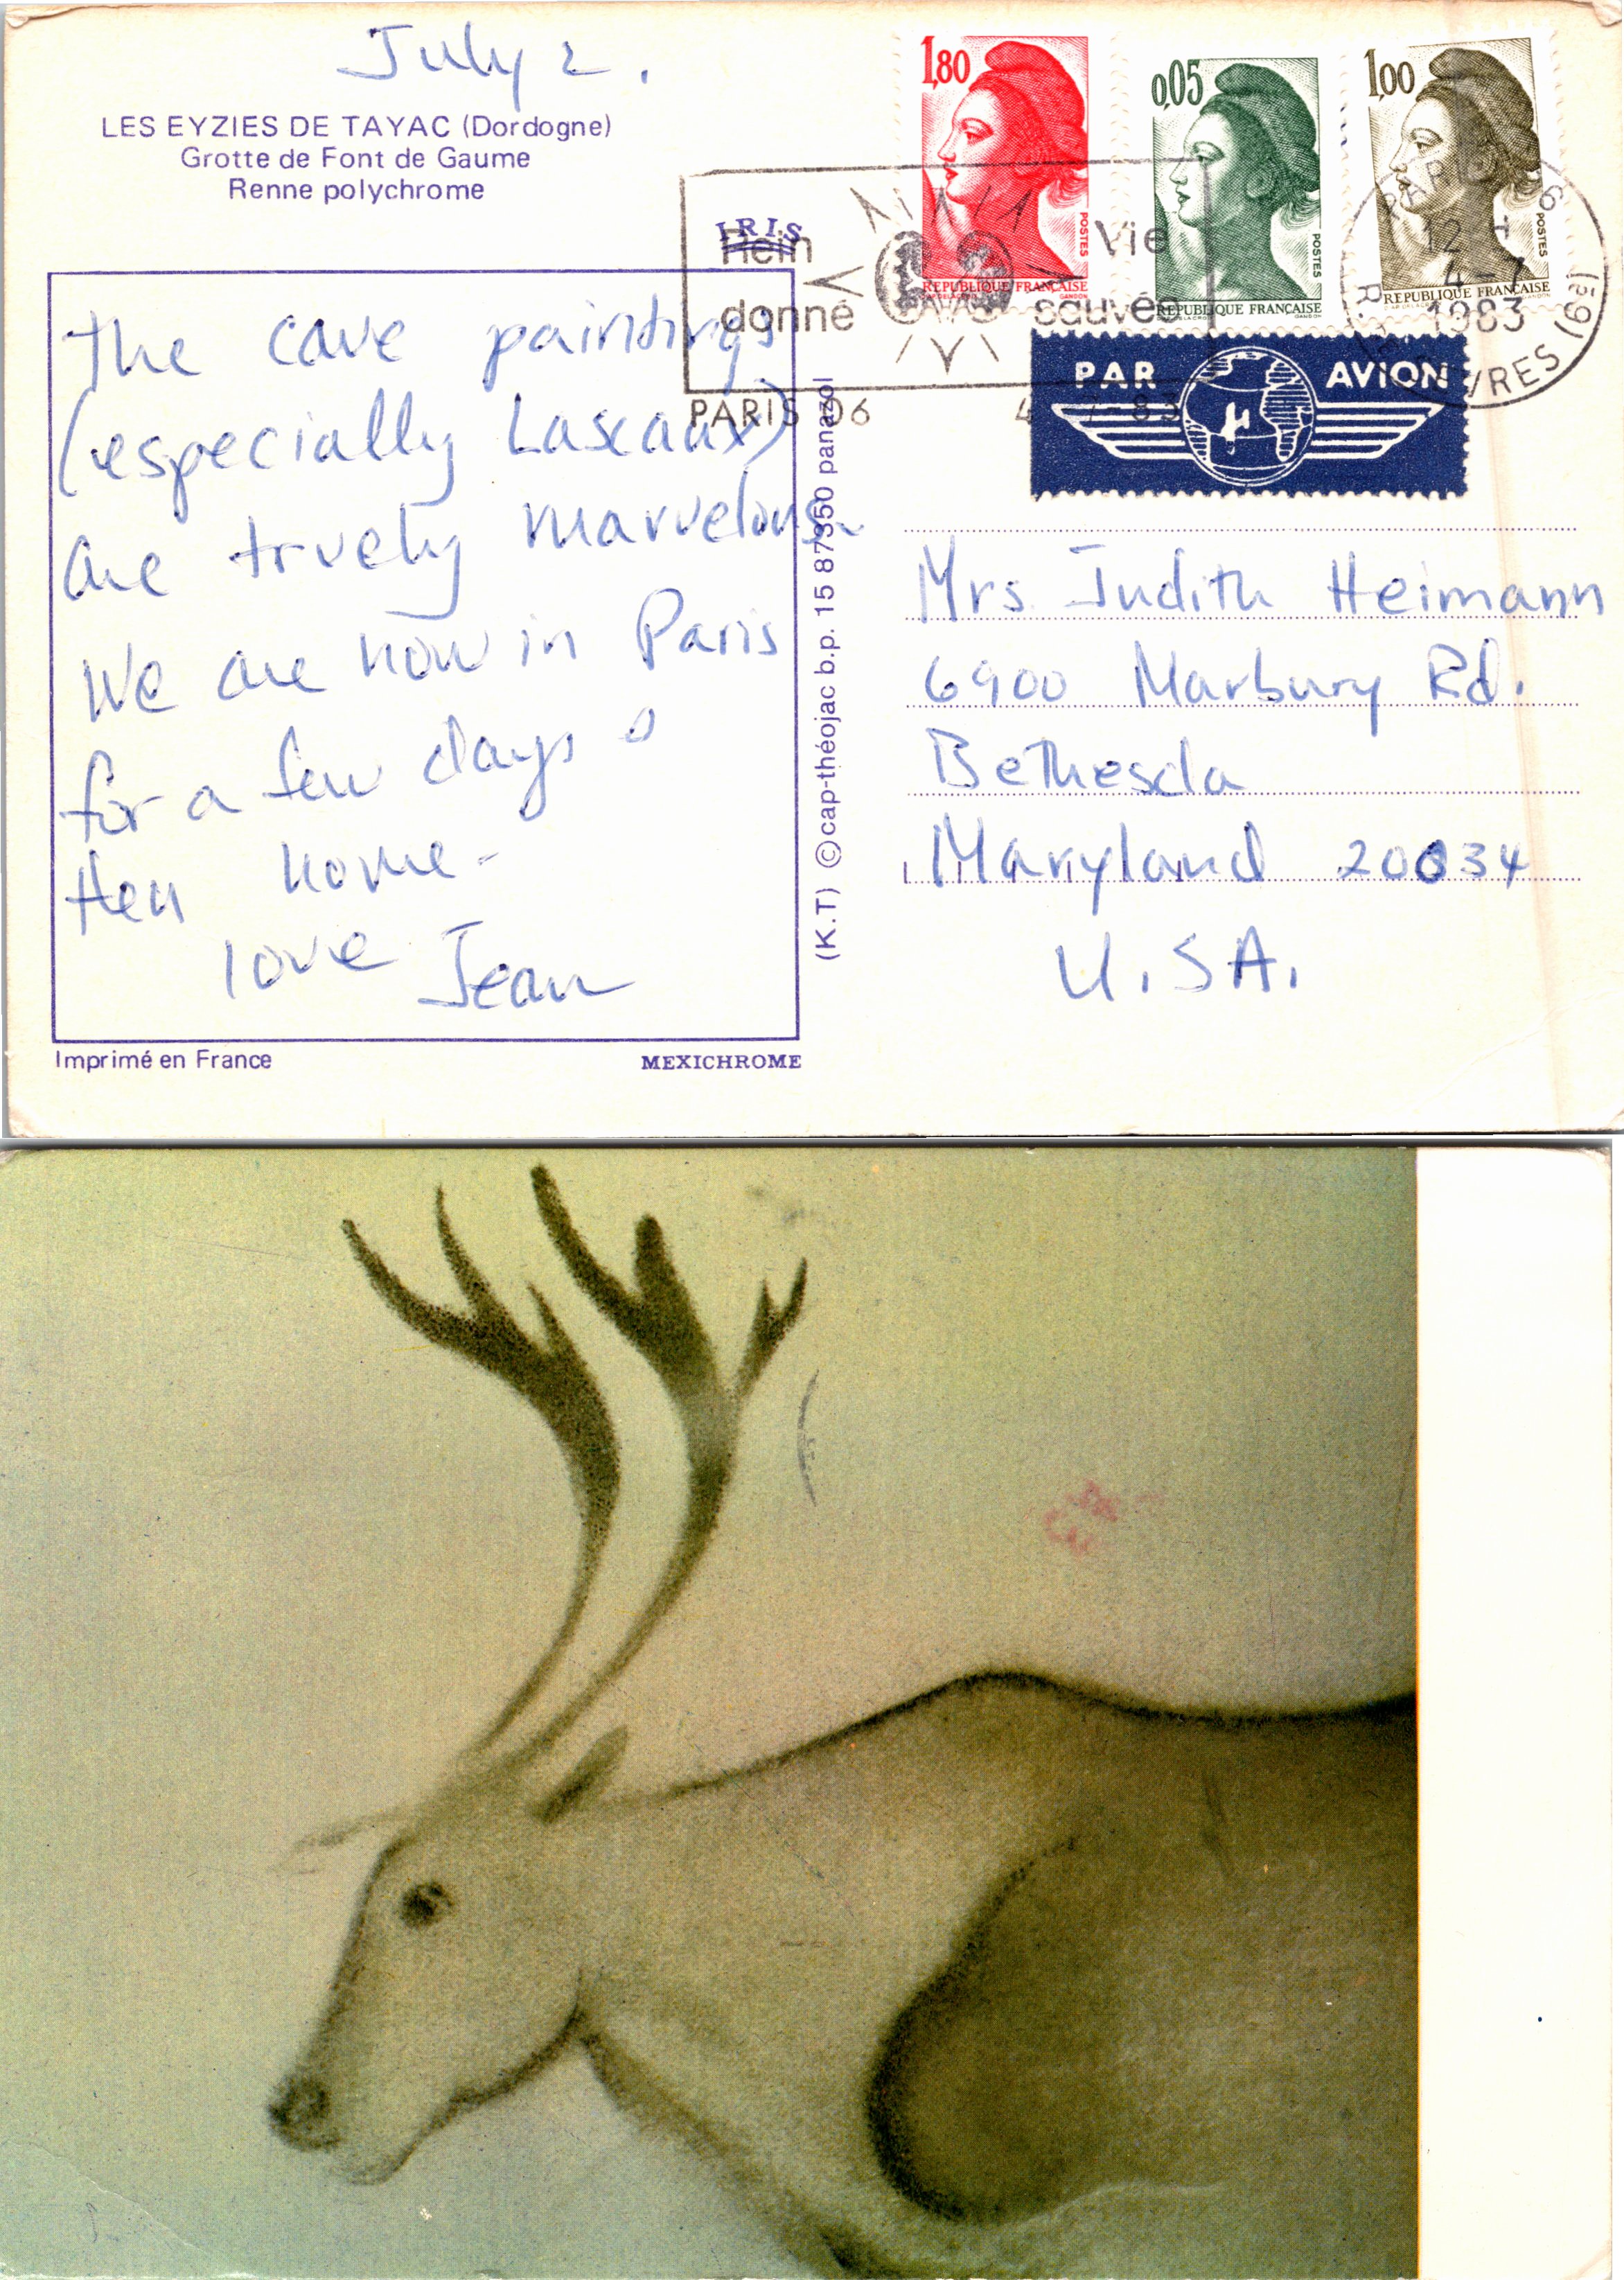 July 2.
LES EYZIES DE TAYAC (Dordogne)
Grotte de Font de Gaume
Renne polychrome
1,80
POSTES
REPUBLIQUE FRANÇAISE
GANDON
0,05
POSTES
REPUBLIQUE FRANÇAISE
GANDON
1,00
POSTES
REPUBLIQUE FRANÇAISE
IRIS
Rein
donné
Vie
sauvée
PARIS 06
4-7-83
12 H
4-7
1983
PAR AVION
the cave paintings
(especially Lascaux)
are truely marvelous.
We are now in Paris
for a few days &
then home -
love Jean
(K.T) © cap-théojac b.p. 15 87350 panazol
Mrs. Judith Heimann
6900 Marbury Rd.
Bethesda
Maryland 20034
U.S.A.
Imprimé en France
MEXICHROME